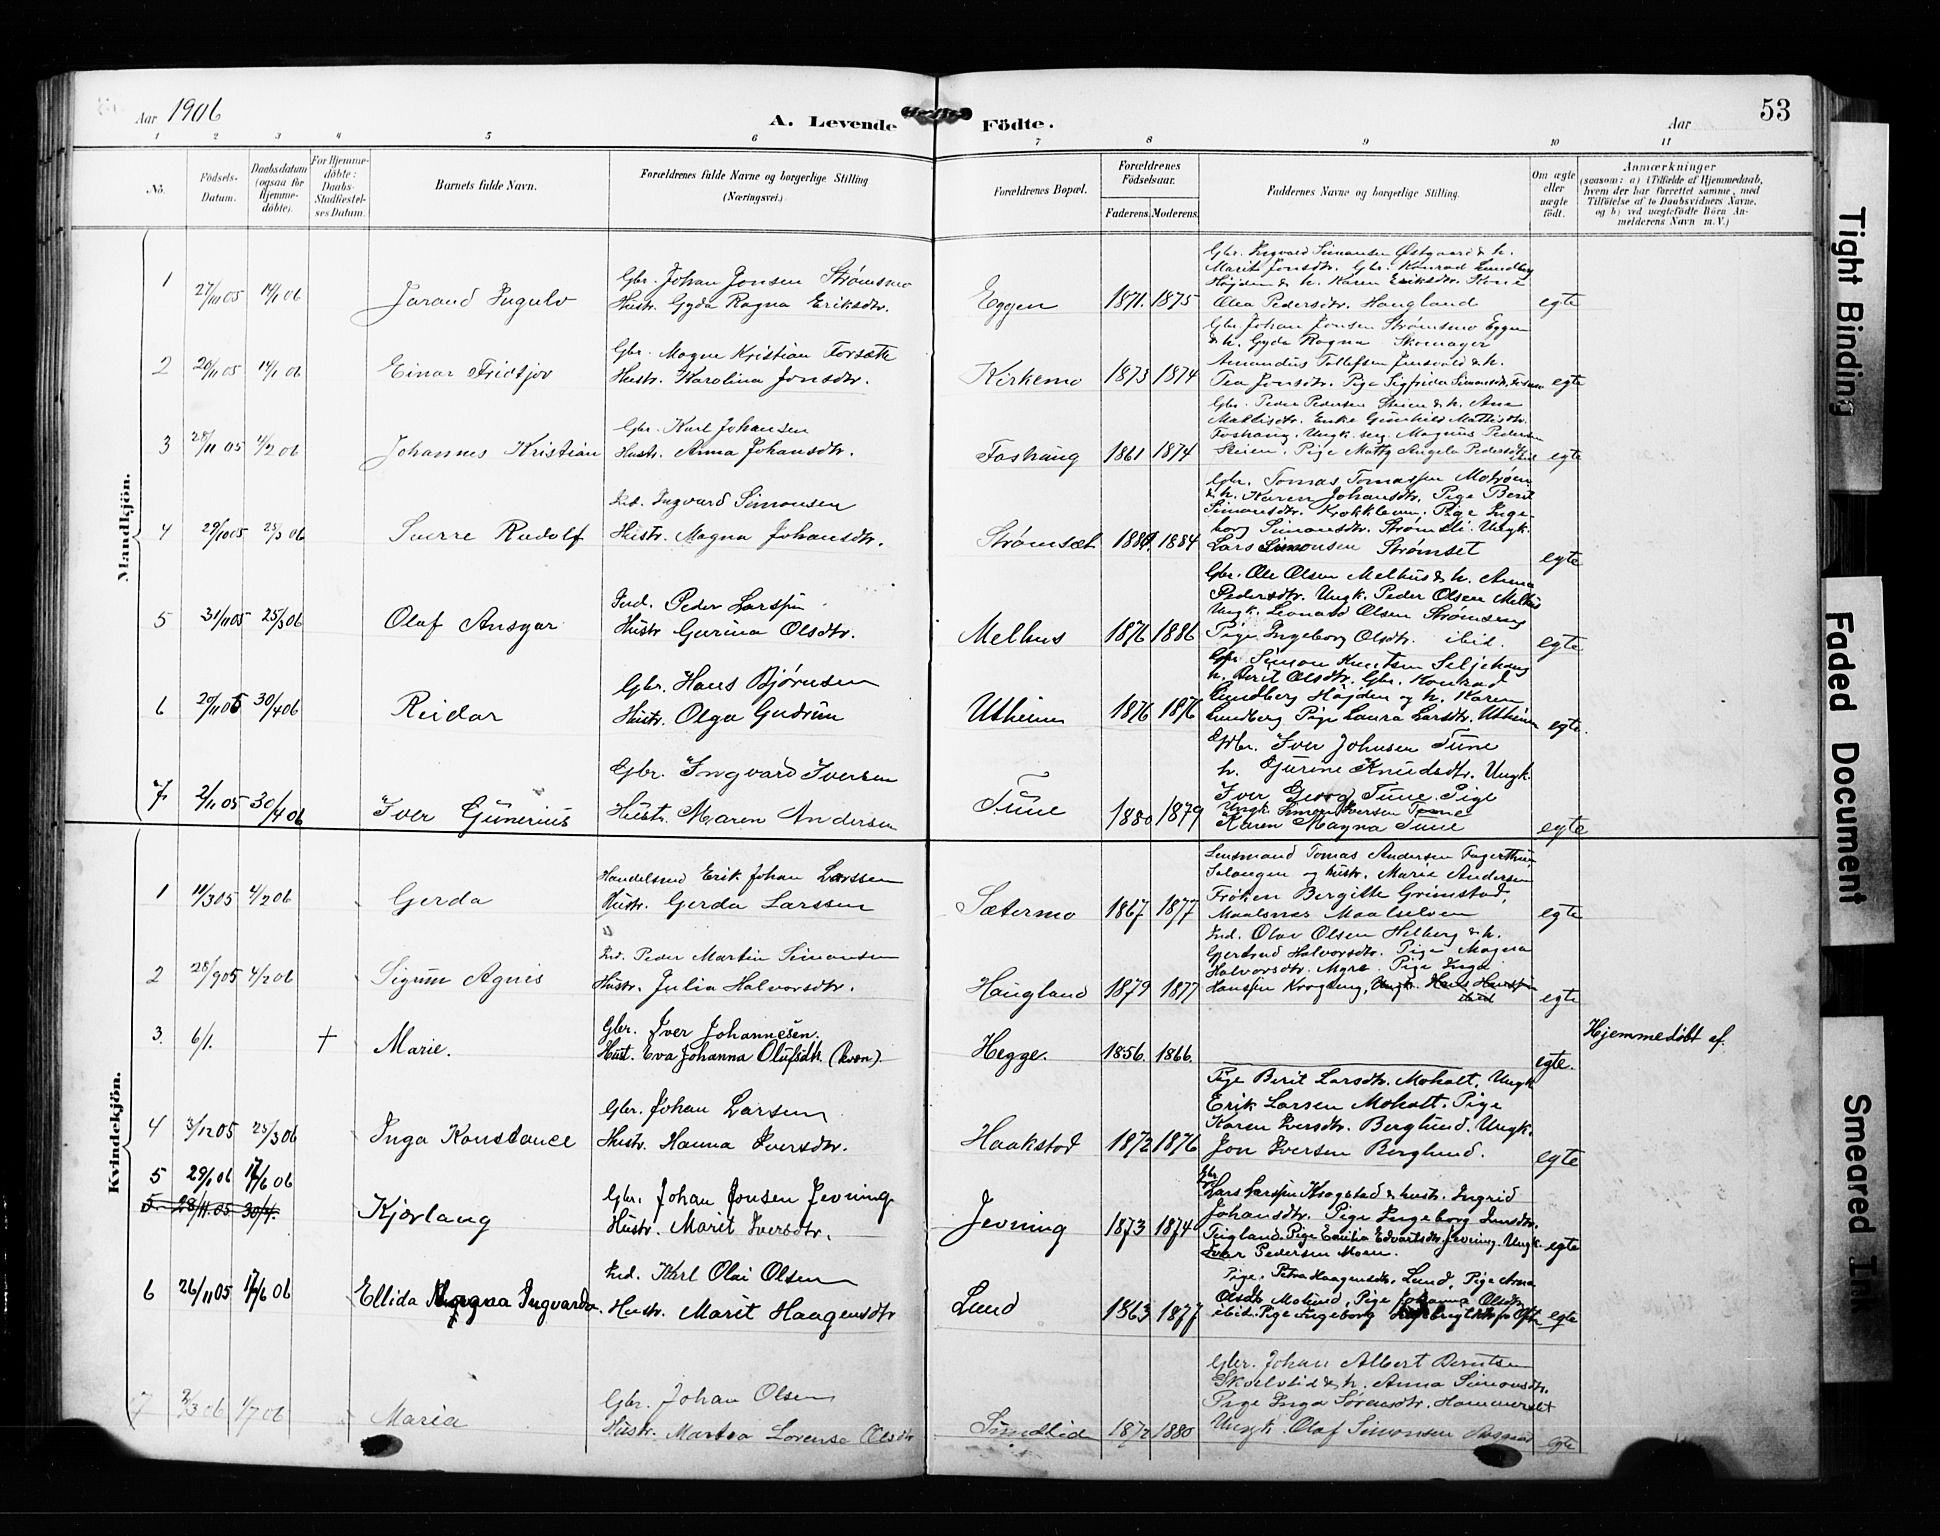 Aar 1906
A. Levende Födte.
Aar
53
1 2 3 4 5 6 7 8 9 10 11
No.
Födsels-Datum.
Daabsdatum (ogsaa for Hjemme-döbte).
For Hjemme-döbte: Daabs-Stadfæstel-ses Datum.
Barnets fulde Navn.
Forældrenes fulde Navne og borgerlige Stilling (Næringsvei.)
Forældrenes Bopæl.
Forældrenes Födselsaar.
Faderens. Moderens.
Faddernes Navne og borgerlige Stilling.
Om ægte eller uægte födt.
Anmærkninger
(saasom: a) i Tilfælde af Hjemmedaab,
hvem der har forrettet samme, med
Tilföielse af to Daabsvidners Navne.
og b) ved uægtefödte Börn An-
melderens Navn m. V.)
Mandkjön.
Gbr. Ingvard Simonsen Østgaard & h.
Marit Jonsdtr. Gbr. Konrad Lundberg
1 27/11 05 14/1 06 Jarand Ingulv
Gbr. Johan Jonsen Strømsmo
Hustr. Gyda Ragna Eriksdtr.
Eggen 1871. 1875
Højden & h. Karen Eriksdtr. Kone
Olea Pedersdtr. Haugland egte
Gbr. Johan Jonsen Strømsmo Eggen
& h. Gyda Ragna Skomager
2 20/11 05 14/1 06 Einar Fridtjov
Gbr. Magnus Kristian Forsætte
Hustr. Karolina Jonsdtr.
Kirkemo 1873 1874
Amandus Tollefsen & h.
Tea Jonsdtr. Pige Sigfrida Simonsdtr. egte
Gbr. Peder Pedersen Steien & h. Ane
Mattisdtr. Enke Gunhild Mattisdtr.
3 28/11 05 4/2 06 Johannes Kristian
Gbr. Karl Johansen
Hustr. Anna Johansdtr.
Foshaug 1861 1874
Foshaug. Ungk. Magnus Pedersen
Steien. Pige Matty Angela Pedersdtr. egte
Gbr. Tomas Tomassen Motrøen
& h. Karen Johansdtr. Pige Berit
Simonsdtr. Krokkleven. Pige Inge-
borg Simonsdtr. Strømsli. Ungk.
4 29/10 05 25/3 06 Sverre Rudolf
Ind. Ingvard Simonsen
Hustr. Magna Johansdtr.
Strømsæt 1884
Lars Simonsen Strømset egte
Gbr. Ole Olsen Melhus & h. Anna
Pedersdtr. Ungk. Peder Olsen Melhus
Ungk. Leonard Olsen Strømseng
5 31/11 05 25/3 06 Olaf Ansgar
Ind. Peder Larssen
Hustr Gurina Olsdtr.
Melhus 1876 1886
Pige Ingeborg Olsdtr. ibid. egte
Gbr Simon Knutsen Seljehaug
h. Berit Olsdtr. Gbr. Konrad
6 20/11 05 30/4 06 Reidar
Gbr. Hans Bjørnsen
Hustr. Olga Gudrun
Utheim 1876 1876
Lundberg Højden og h. Karen
Lundberg Pige Laura Larsdtr. Utheim egte.
Gbr. Iver Johnsen Tune
h. Gurine Knudsdtr. Ungk.
Iver Georg Tune. Pige
7 2/11 05 30/4 06 Iver Gunerius
Gbr. Ingvard Iversen
Hustr. Maren Andersen
Tune 1880 1879
Ungk. Simon Iversen Tune
Karen Magna Tune egte
Kvindekjön.
Lensmand Tomas Andersen Fagerthun
Salangen og hustr. Marie Andersen
1 11/3 05 4/2 06 Gerda
Handelsmd Erik Johan Larssen
Hustr. Gerda Larssen
Sætermo 1867 1877
Frøken Bergitte Grimstad,
Maalsnæs Maalselven egte
Ind. Olav Olsen Helberg & h.
Gjertrud Halvorsdtr. Pige Magna
2 28/9 05 4/2 06 Sigrun Agnis
Ind. Peder Martin Simonsen
Hustr. Julia Halvorsdtr.
Haugland 1879 1877
Halvorsdtr. Myre. Pige Inga
Hanssen Krogseng, Ungk. Hans Hanssen ibid egte
3. 6/1. † Marie.
Gbr. Iver Johannesen.
Hust. Eva Johanna Olufsdtr. (kvæn).
Hegge. 1856. 1866. egte.
Hjemmedøbt af.
Pige Berit Larsdtr. Moholt, Ungk
Erik Larsen Moholt. Pige
4 3/12 05 25/3 06 Inga Konstance
Gbr. Johan Larsen
Hustr. Hanna Iversdtr.
Haakstad 1872 1876
Karen Iversdtr. Berglund. Ungk.
Jon Iversen Berglund. egte
5 29/1 06 17/6 06
5. 28/11. 05 30/4. Kjørlaug
Gbr. Johan Jonsen Jevning
Hustr. Marit Iversdtr.
Jevning 1873 1874
Gbr Lars Larssen Krogstad & hustr. Ingrid
Johansdtr. Pige Ingeborg Jonsdtr.
Tingland. Pige Emilia Edvartsdtr. Jevning. Ungk.
Ivar Pedersen Moen. egte
6 26/11 05 17/6 06 Ellida Magna Ingvarda.
Ind. Karl Olai Olsen
Hustr. Marit Haagensdtr
Lund 1863 1877
Pige. Petra Haagensdtr. Lund, Pige Anna
Olsdtr Molund, Pige Johanna Olsdtr
ibid. Pige Ingeborg egte
Gbr. Johan Albert Berntsen
Skoelvlid & h. Anna Simonsdtr.
7 2/3 06 1/7 06 Maria
Gbr. Johan Olsen
Hustr. Martea Lorense Olsdtr
Sundlid 1872 1880
Pige Inga Sørensdtr. Hammerslet
Ungk. Olaf Simonsen egte
Tight Binding
Faded Document
Smeared Ink